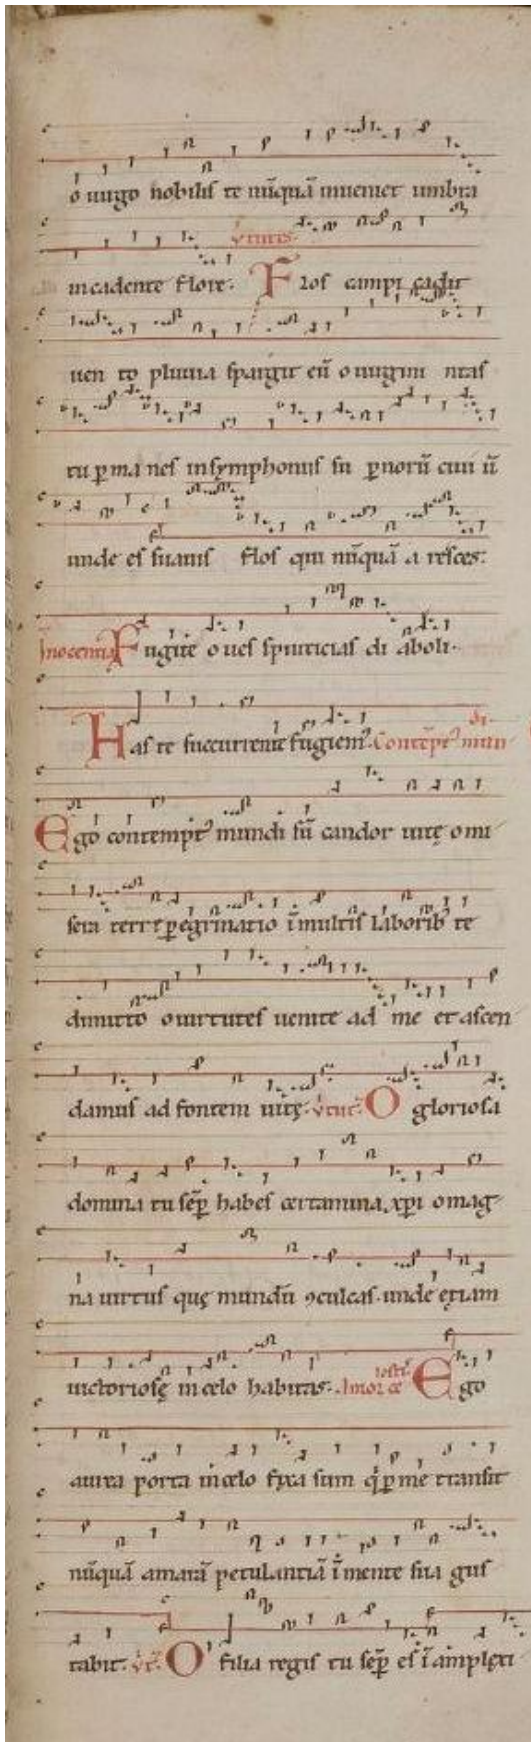 o uirgo nobilis te nūquā inueniet umbra
in cadente flore. Vırtutes. Flos campi cadit
uen to pluuia spargit eū o uirgini tas
tu ꝑma nes in symphoniis su ꝑnorū ciui ū
unde es suauis flos qui nūquā a resces.
Inocentia Fugite o ues spurcicias di aboli.
Has te succurrente fugiemꝰ. Contēptꝰ mun
di.
Ego contemptꝰ mundi sū candor uitę o mi
sera terre ꝑegrinatio ī multis laborib; te
dimitto o uirtutes uenite ad me et ascen
damus ad fontem uitę. O gloriosa
domina tu sēꝑ habes certamina xp̄i o mag
na uirtus quę mundū ꝯculcas. unde etiam
uictoriosę in celo habitas. Amor ce
lestis Ego
aurea porta in celo fixa sum q̇ ꝑ me transit
nūquā amarā petulantiā ī mente sua gus
tabit. O filia regis tu sēꝑ es ī amplexi